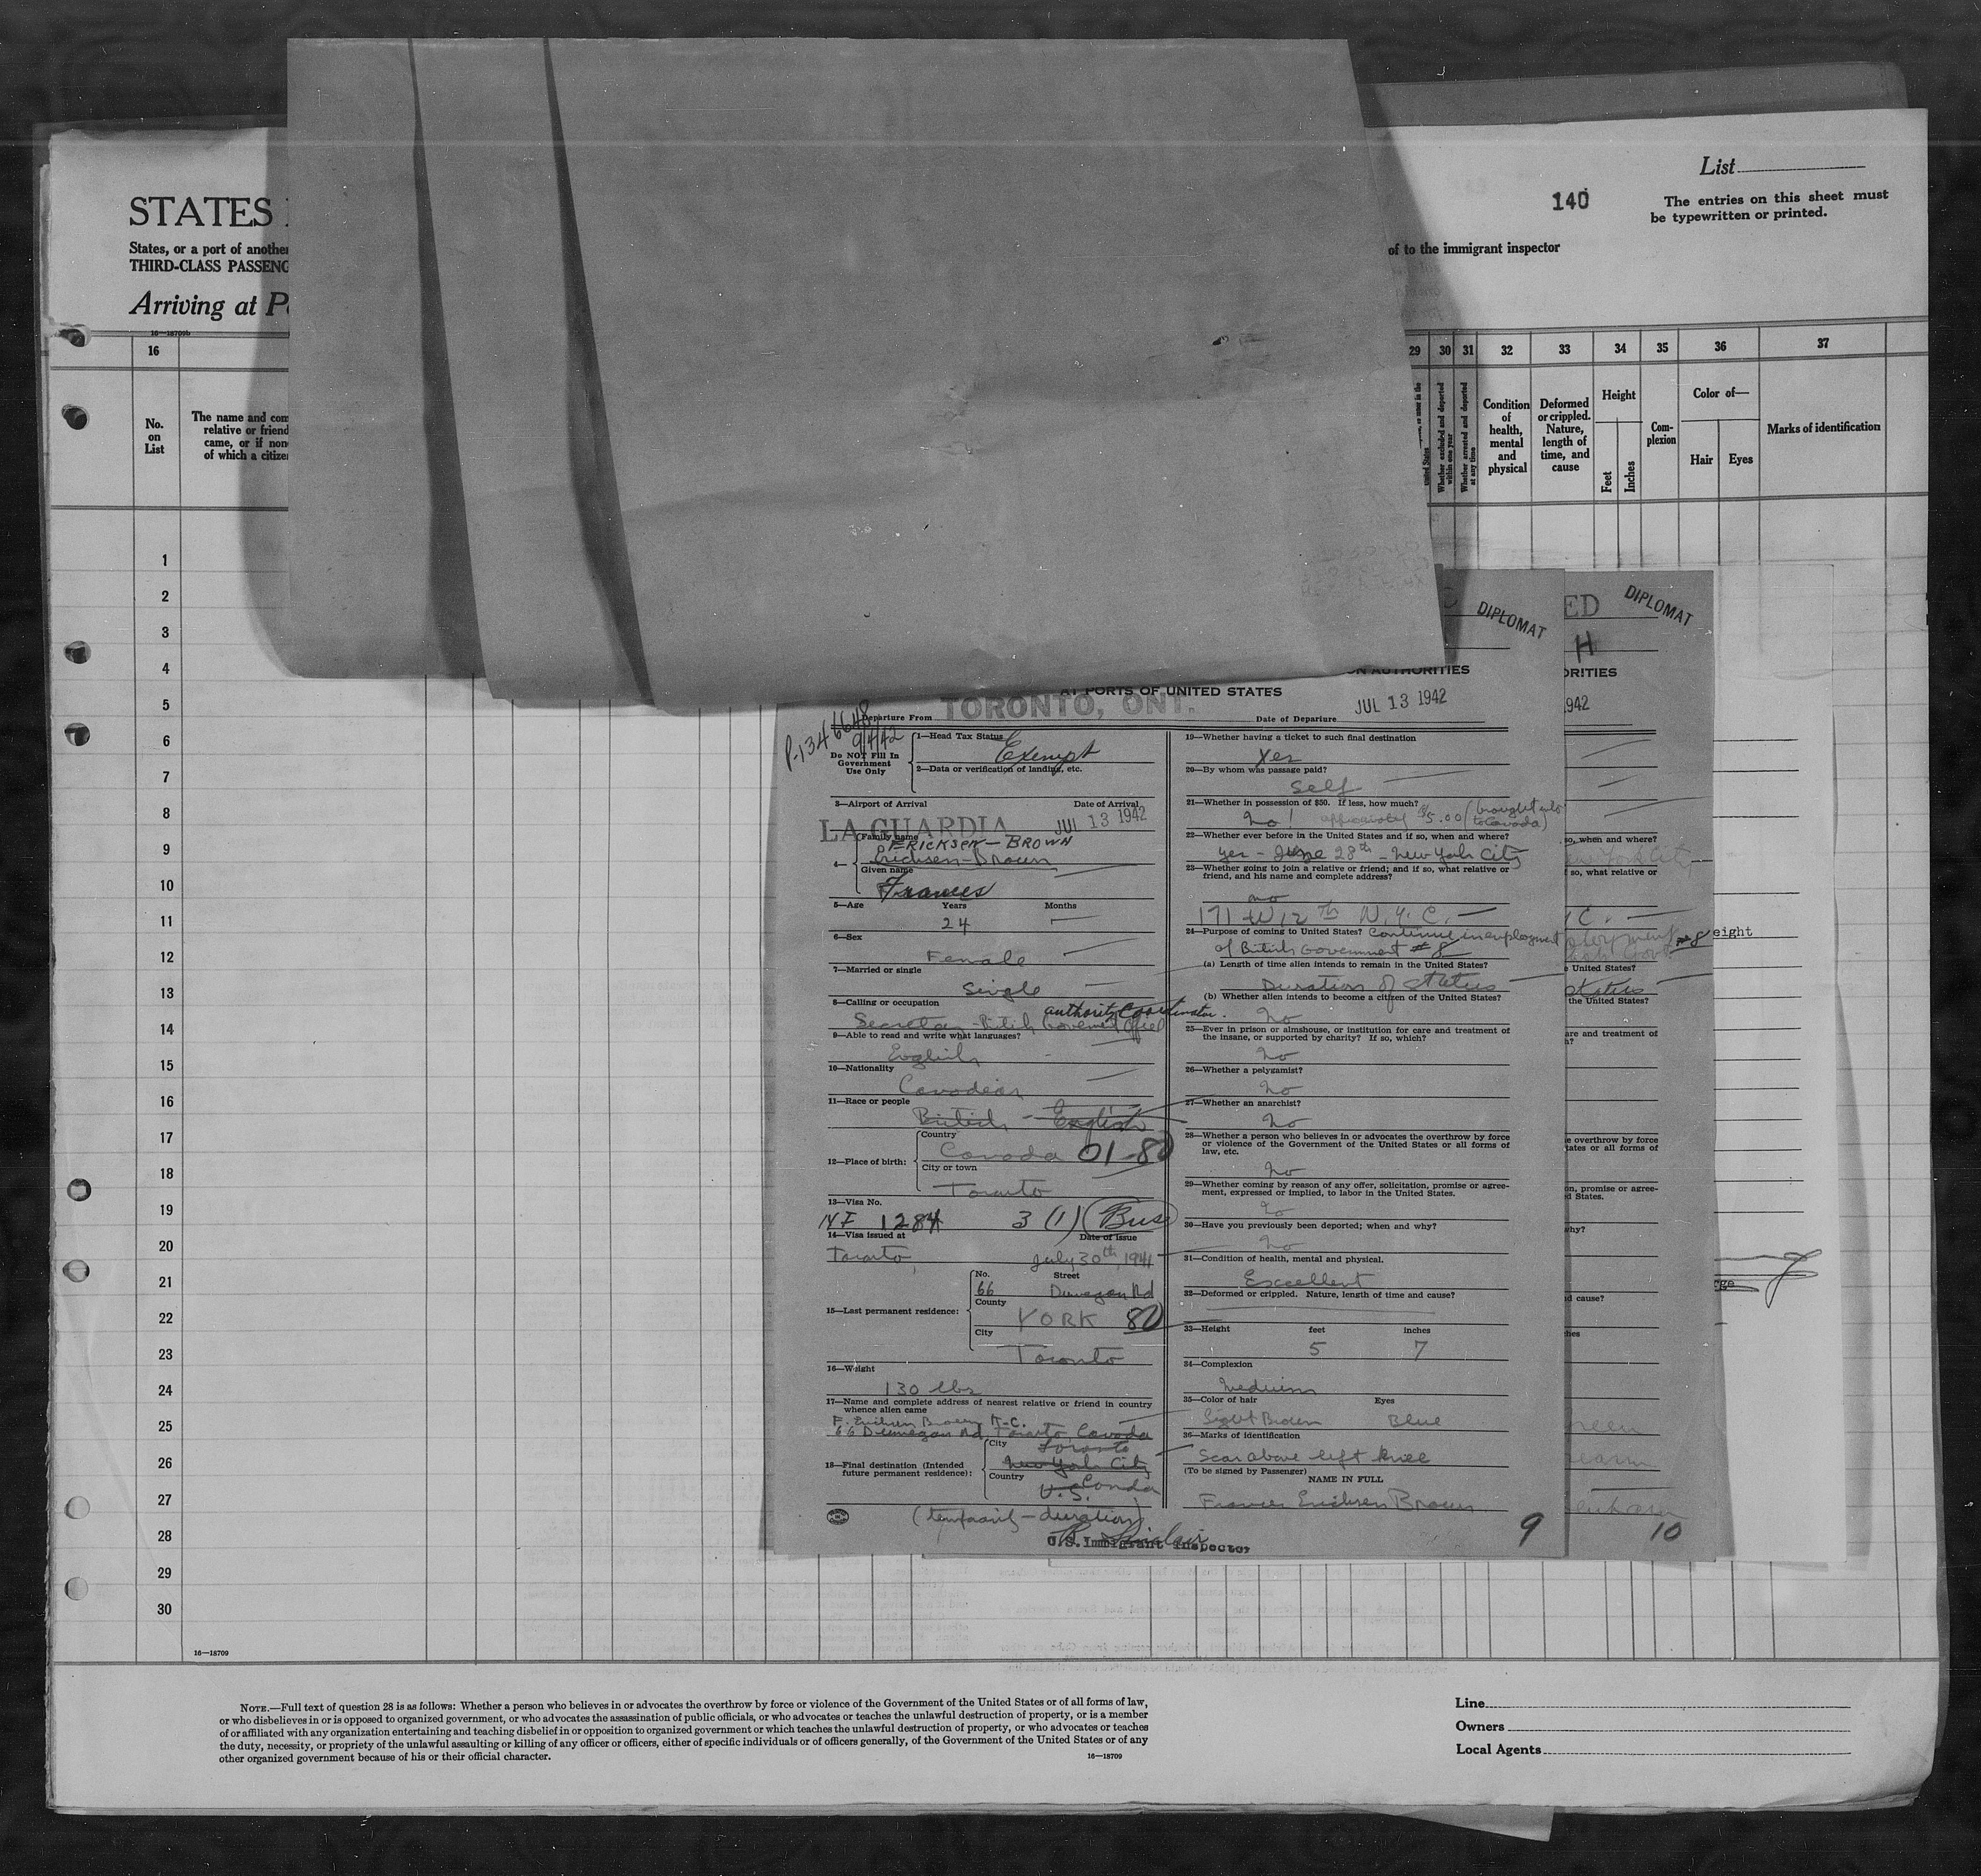 List
140
The entries on this sheet must
be typewritten or printed.
STATES
States, or a port of another
THIRD-CLASS PASSENG
of to the immigrant inspector
Arriving at P
16—18709b
16
29
30
31
32
33
34
35
36
37
No.
on
List
The name and com
relative or friend
came, or if non
of which a citize
Whether excluded and deported
within one year
Whether arrested and deported
at any time
Condition
of
health,
mental
and
physical
Deformed
or crippled.
Nature,
length of
time, and
cause
Height
Feet
Inches
Com-
plexion
Color of—
Hair
Eyes
Marks of identification
1
2
3
4
5
6
7
8
9
10
11
12
13
14
15
16
17
18
19
20
21
22
23
24
25
26
27
28
29
30
16—18709
C
DIPLOMAT
ON AUTHORITIES
AT PORTS OF UNITED STATES
Departure From TORONTO, ONT.
Date of Departure JUL 13 1942
P-1346648
9/4/42
Do NOT Fill In
Government
Use Only
1—Head Tax Status
Exempt
2—Data or verification of landing, etc.
3—Airport of Arrival
Date of Arrival
LA GUARDIA JUL 13 1942
4—
Family name
ERICKSEN-BROWN
Erichsen-Brown
Given name
Frances
5—Age
Years
Months
24
6—Sex
Female
7—Married or single
Single
8—Calling or occupation
authority Coordinator.
Secretary - British Government Office
9—Able to read and write what languages?
English
10—Nationality
Canadian
11—Race or people
British - English
12—Place of birth:
Country
Canada 01-80
City or town
Toronto
13—Visa No.
NI 1284 3 (1) (Bus)
14—Visa issued at
Date of issue
Toronto, July 30th, 1941
15—Last permanent residence:
No.
Street
66 Dunvegan Rd
County
YORK 80
City
Toronto
16—Weight
130 lbs
17—Name and complete address of nearest relative or friend in country
whence alien came
F. Erichsen Brown K.C.
66 Dunvegan Rd, Toronto, Canada
18—Final destination (Intended
future permanent residence):
City
Toronto
New York City
Country
Canda
U.S.
(temporarily - duration)
Sinclair
U.S. Immigrant Inspector
19—Whether having a ticket to such final destination
Yes
20—By whom was passage paid?
Self
21—Whether in possession of $50. If less, how much?
No! $5.00 (brought
to Canada)
22—Whether ever before in the United States and if so, when and where?
yes - June 28th - New York City
23—Whether going to join a relative or friend; and if so, what relative or
friend, and his name and complete address?
no
171 W 12th N.Y.C.
24—Purpose of coming to United States? Continue in employment
of British Government #8
(a) Length of time alien intends to remain in the United States?
Duration of status
(b) Whether alien intends to become a citizen of the United States?
No
25—Ever in prison or almshouse, or institution for care and treatment of
the insane, or supported by charity? If so, which?
No
26—Whether a polygamist?
No
27—Whether an anarchist?
No
28—Whether a person who believes in or advocates the overthrow by force
or violence of the Government of the United States or all forms of
law, etc.
No
29—Whether coming by reason of any offer, solicitation, promise or agree-
ment, expressed or implied, to labor in the United States.
No
30—Have you previously been deported; when and why?
No
31—Condition of health, mental and physical.
Excellent
32—Deformed or crippled. Nature, length of time and cause?
33—Height
feet
inches
5
7
34—Complexion
Medium
35—Color of hair
Eyes
Light Brown Blue
36—Marks of identification
Scar above left knee
(To be signed by Passenger)
NAME IN FULL
Frances Erichsen Brown
9
ED
DIPLOMAT
H
ORITIES
942
so, when and where?
ew York City
f so, what relative or
C.
#8
e United States?
status
the United States?
are and treatment of
h?
e overthrow by force
tates or all forms of
on, promise or agree-
d States.
why?
d cause?
hes
reen
10
eight
rge
NOTE.—Full text of question 28 is as follows: Whether a person who believes in or advocates the overthrow by force or violence of the Government of the United States or of all forms of law,
or who disbelieves in or is opposed to organized government, or who advocates the assassination of public officials, or who advocates or teaches the unlawful destruction of property, or is a member
of or affiliated with any organization entertaining and teaching disbelief in or opposition to organized government or which teaches the unlawful destruction of property, or who advocates or teaches
the duty, necessity, or propriety of the unlawful assaulting or killing of any officer or officers, either of specific individuals or of officers generally, of the Government of the United States or of any
other organized government because of his or their official character.
16—18709
Line
Owners
Local Agents